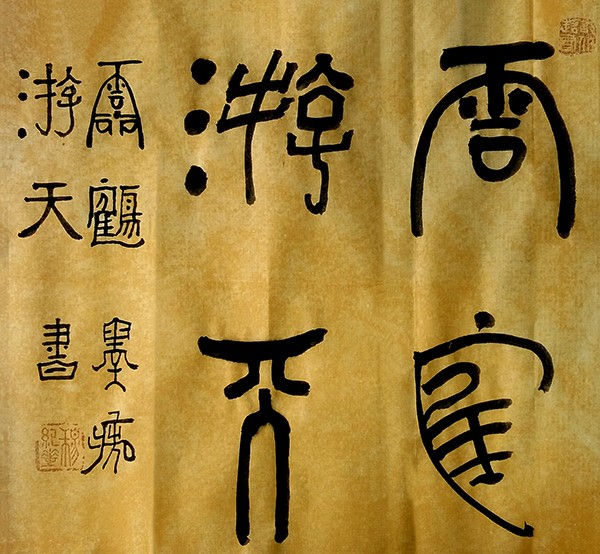 雲鶴
游天
雲鶴
游天
墨痴
書